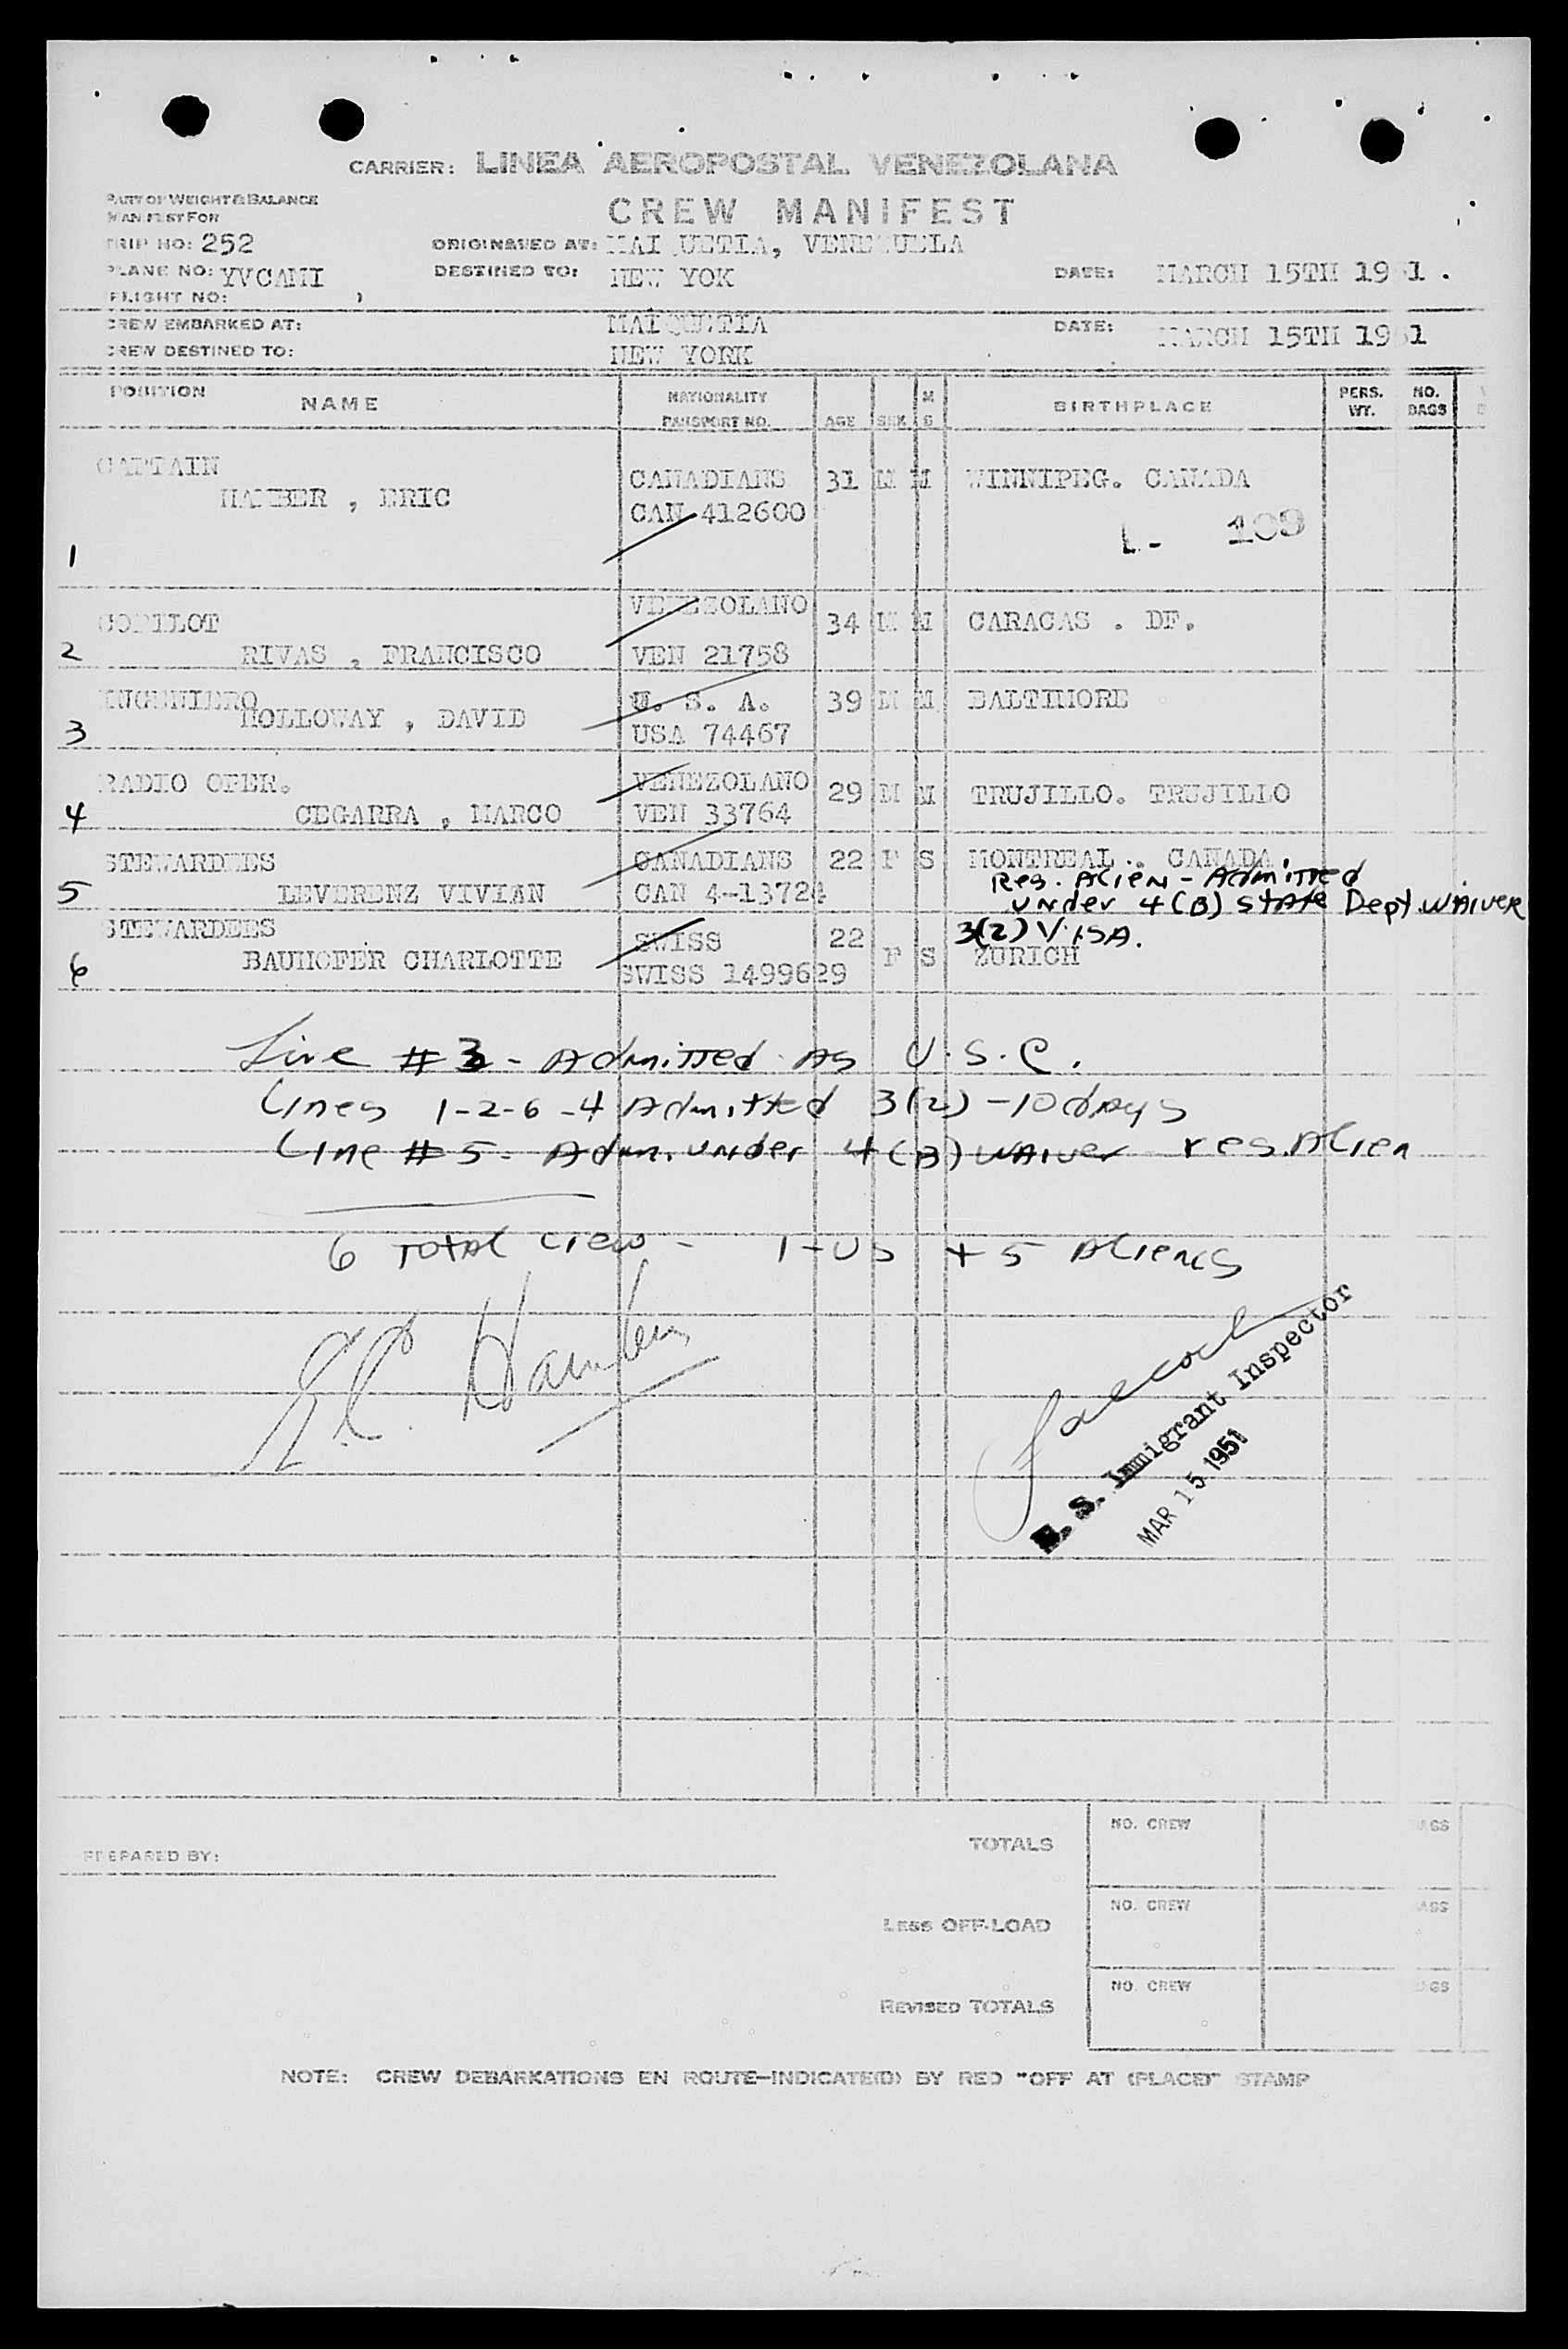 CARRIER: LINEA AEROPOSTAL VENEZOLANA
PART OF WEIGHT & BALANCE
MANIFEST FOR
CREW MANIFEST
TRIP NO: 252
ORIGINATED AT: MAIQUETIA, VENEZUELA
PLANE NO: YVCAMI
DESTINED TO: NEW YOK
DATE: MARCH 15TH 1951.
FLIGHT NO:
CREW EMBARKED AT: MAIQUETIA
DATE: MARCH 15TH 1951
CREW DESTINED TO: NEW YORK
POSITION NAME NATIONALITY PASSPORT NO. AGE SEX M S BIRTHPLACE PERS. WT. NO. BAGS
CAPTAIN
HAMBER , ERIC CANADIANS 31 M M WINNIPEG. CANADA
CAN 412600
L- 109
1
VENEZOLANO
COPILOT 34 M M CARACAS . DF.
2 RIVAS , FRANCISCO VEN 21758
INGENIERO U. S. A. 39 M M BALTIMORE
HOLLOWAY , DAVID
3 USA 74467
RADIO OPER. VENEZOLANO 29 M M TRUJILLO. TRUJILLO
4 CEGARRA , MARCO VEN 33764
STEWARDEES CANADIANS 22 F S MONTREAL . CANADA.
Res. Alien - Admitted
5 LEVERENZ VIVIAN CAN 4-13724
under 4(B) State Dept waiver
STEWARDEES SWISS 22
3(2) VISA.
6 BAUHOFER CHARLOTTE F S ZURICH
SWISS 1499629
Line # 3 - Admitted As U.S.C.
Lines 1-2-6-4 Admitted 3(2) - 10 days
Line # 5 - Adm. under 4(B) waiver res. Alien
6 Total crew - 1-US + 5 Aliens
E.C. Hamber
U. S. Immigrant Inspector
MAR 15 1951
PREPARED BY:
TOTALS NO. CREW
LESS OFF-LOAD NO. CREW
REVISED TOTALS NO. CREW
NOTE: CREW DEBARKATIONS EN ROUTE—INDICATE(D) BY RED "OFF AT (PLACE)" STAMP